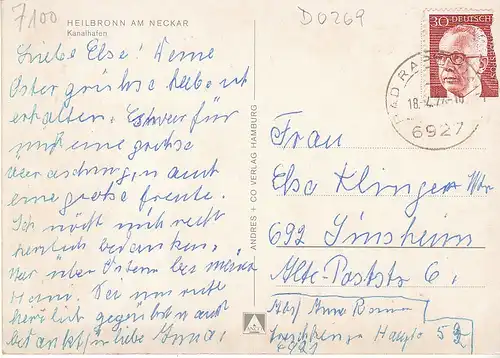 7100
D0269
HEILBRONN AM NECKAR
Kanalhafen
Liebe Else! Deine
Ostergrüße habe ich
erhalten. Es war für
mich eine große
Überraschung, u auch
eine große Freude.
Ich möcht mich recht
herzlich bedanken,
War über Ostern bei meine
Sei mir recht
herzlich gegrüßt u auch
bedankt, in liebe Irma.
ANDRES + CO VERLAG HAMBURG
30 DEUTSCHE
BAD RA
6927
Frau
Else Klinger
692 Sinsheim
Alte-Poststr 6.
Abs/ Anna
Hauptstr 52
6921